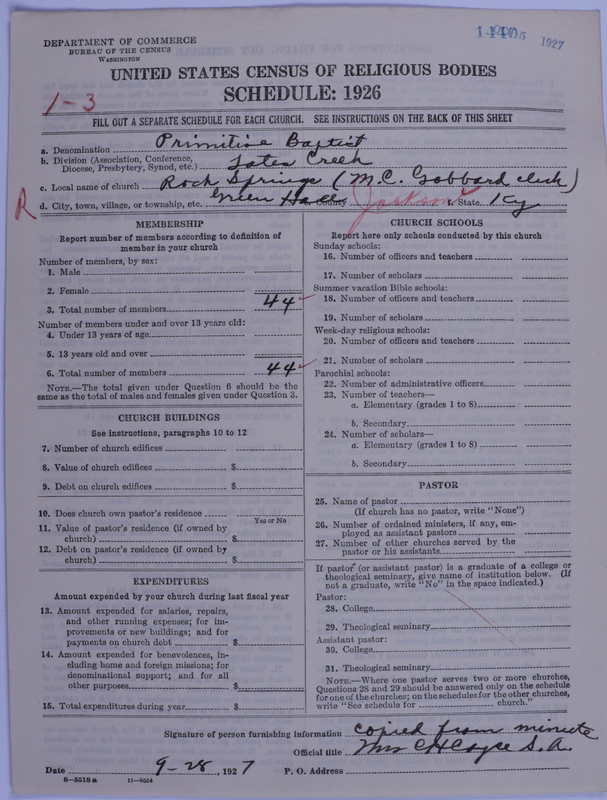 DEPARTMENT OF COMMERCE
BUREAU OF THE CENSUS
WASHINGTON
1927
UNITED STATES CENSUS OF RELIGIOUS BODIES
SCHEDULE: 1926
1-3
FILL OUT A SEPARATE SCHEDULE FOR EACH CHURCH. SEE INSTRUCTIONS ON THE BACK OF THIS SHEET
a. Denomination Primitive Baptist
b. Division (Association, Conference,
Diocese, Presbytery, Synod, etc.) Tates Creek
c. Local name of church Rock Springs (M.C. Gabbard clerk)
R
d. City, town, village, or township, etc. Green Hall County Jackson State Ky
MEMBERSHIP
Report number of members according to definition of
member in your church
Number of members, by sex:
1. Male
2. Female
3. Total number of members 44
Number of members under and over 13 years old:
4. Under 13 years of age
5. 13 years old and over
6. Total number of members 44
NOTE.—The total given under Question 6 should be the
same as the total of males and females given under Question 3.
CHURCH BUILDINGS
See instructions, paragraphs 10 to 12
7. Number of church edifices
8. Value of church edifices $
9. Debt on church edifices $
10. Does church own pastor's residence
Yes or No
11. Value of pastor's residence (if owned by
church) $
12. Debt on pastor's residence (if owned by
church) $
EXPENDITURES
Amount expended by your church during last fiscal year
13. Amount expended for salaries, repairs,
and other running expenses; for im-
provements or new buildings; and for
payments on church debt $
14. Amount expended for benevolences, in-
cluding home and foreign missions; for
denominational support; and for all
other purposes $
15. Total expenditures during year $
CHURCH SCHOOLS
Report here only schools conducted by this church
Sunday schools:
16. Number of officers and teachers
17. Number of scholars
Summer vacation Bible schools:
18. Number of officers and teachers
19. Number of scholars
Week-day religious schools:
20. Number of officers and teachers
21. Number of scholars
Parochial schools:
22. Number of administrative officers
23. Number of teachers—
a. Elementary (grades 1 to 8)
b. Secondary
24. Number of scholars—
a. Elementary (grades 1 to 8)
b. Secondary
PASTOR
25. Name of pastor
(If church has no pastor, write "None")
26. Number of ordained ministers, if any, em-
ployed as assistant pastors
27. Number of other churches served by the
pastor or his assistants
If pastor (or assistant pastor) is a graduate of a college or
theological seminary, give name of institution below. (If
not a graduate, write "No" in the space indicated.)
Pastor:
28. College
29. Theological seminary
Assistant pastor:
30. College
31. Theological seminary
NOTE.—Where one pastor serves two or more churches,
Questions 28 and 29 should be answered only on the schedule
for one of the churches; on the schedules for the other churches,
write "See schedule for church."
Signature of person furnishing information copied from minute
Official title Mrs C H Cayce S.A.
Date 9-28, 1927 P. O. Address
8-5518a 11-9054